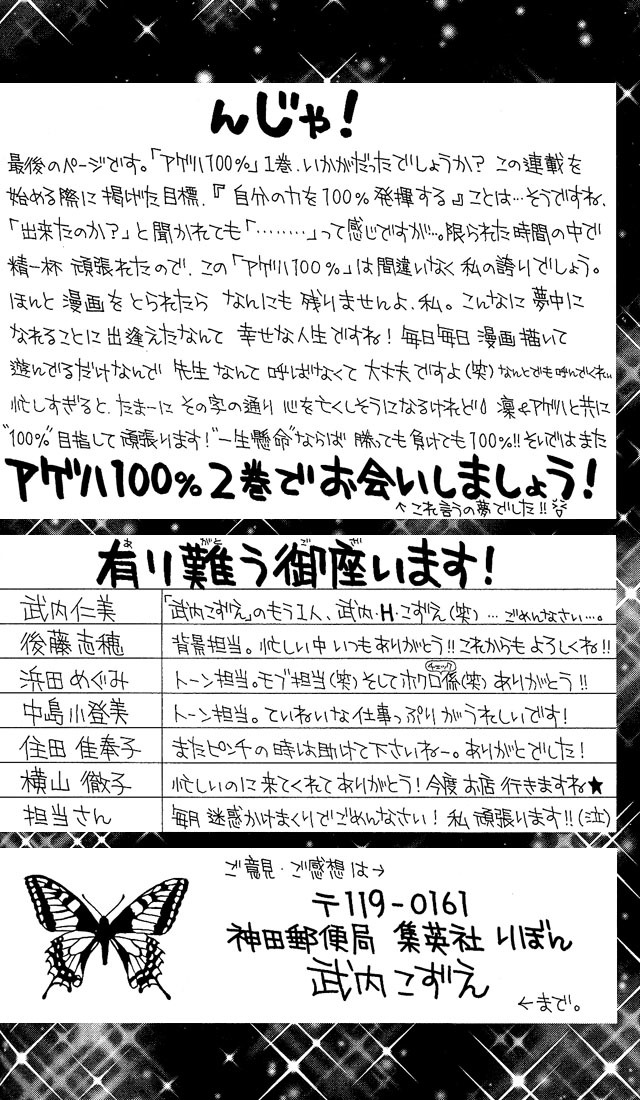 んじゃ!
最後のページです。「アゲハ100%」1巻、いかがだったでしょうか? この連載を
始める際に掲げた目標、『自分の力を100%発揮する』ことは…そうですね、
「出来たのか?」と聞かれても「………」って感じですが…。限られた時間の中で
精一杯 頑張れたので、この「アゲハ100%」は間違いなく私の誇りでしょう。
ほんと 漫画を とられたら なんにも 残りませんよ、私。こんなに 夢中に
なれることに 出逢えたなんて 幸せな人生ですね! 毎日毎日 漫画描いて
遊んでるだけなんで 先生 なんて 呼ばなくて 大丈夫ですよ(笑) なんとでも呼んでくれい
忙しすぎると、たまーに その字の通り 心を亡くしそうになるけれど 凛やアゲハと共に
"100%"目指して 頑張ります! "一生懸命"ならば 勝っても負けても100%!! それではまた
アゲハ100% 2巻でお会いしましょう!
↑これ言うの夢でした!!
あ がと ご ざ
有り難う御座います!
武内仁美 「武内こずえ」のもう1人、武内・H・こずえ(笑) … ごめんなさい…。
後藤志穂 背景担当。忙しい中 いつもありがとう!! これからも よろしくね!!
チェック
浜田めぐみ トーン担当。モブ担当(笑) そしてホクロ係(笑) ありがとう!!
中島小登美 トーン担当。ていねいな仕事っぷりがうれしいです!
住田 佳奉子 またピンチの時は助けて下さいねー。ありがとでした!
横山 徹子 忙しいのに 来てくれて ありがとう! 今度 お店 行きますね★
担当さん 毎月 迷惑かけまくりでごめんなさい! 私 頑張ります!! (泣)
ご意見・ご感想は→
〒119-0161
神田郵便局 集英社 りぼん
武内こずえ
←まで。